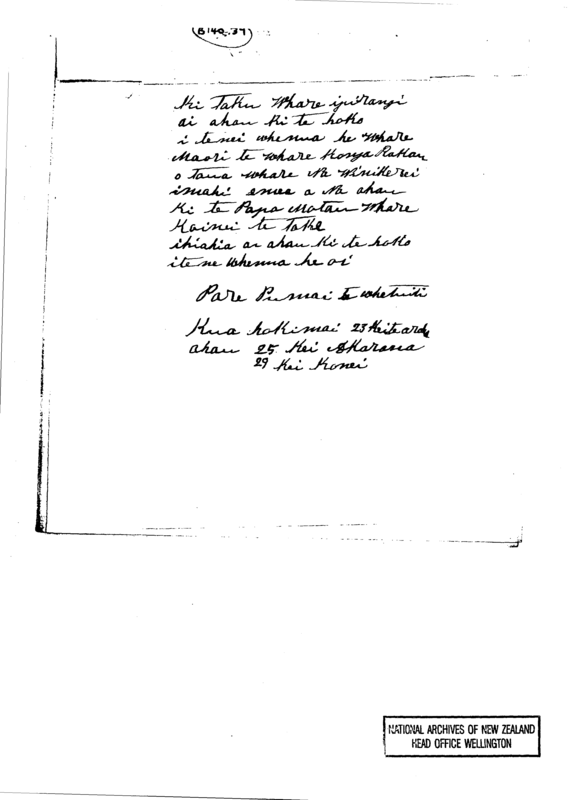 B140.37
Ki Taku Whare
ai ahau ki te hoko
i tenei whenua he Whare
Maori te whare
o taua whare Na Winikerei
imahi a Na ahau
Ki te Papa Whare
Kainei te Take
ihiahia ai ahau Ki te hoko
itene Whenua he oi
Pare Pumai te whetuiti
Kua hokimai 23
ahau 25 Kei Akarana
29 Kei Konei
NATIONAL ARCHIVES OF NEW ZEALAND
HEAD OFFICE WELLINGTON